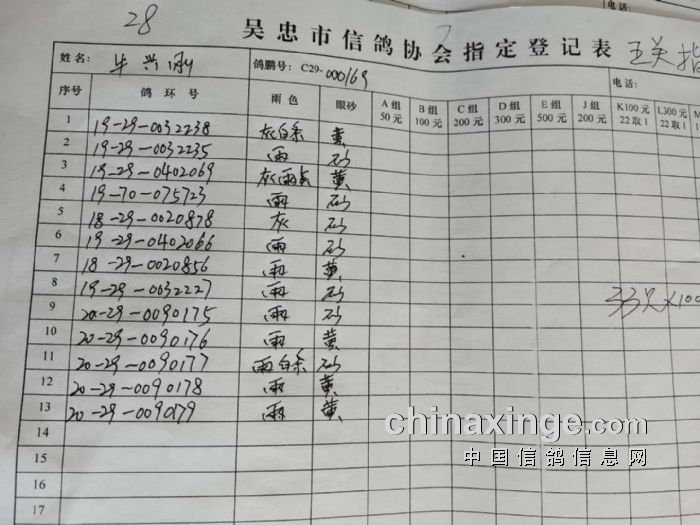 电话：
28
吴忠市信鸽协会指定登记表 五关指
姓名： 牛兴刚 鸽鹏号：C29-000169 电话：
序号 鸽环号 雨色 眼砂 A组 50元 B组 100元 C组 200元 D组 300元 E组 500元 J组 200元 K100元 22取1 L300元 22取1 M
1 19-29-0032238 灰白条 黄
2 19-29-0032235 雨 砂
3 19-29-0402069 灰雨点 黄
4 19-70-075723 雨 砂
5 18-29-0020878 灰 砂
6 19-29-0402066 雨 砂
7 18-29-0020856 雨 黄
8 19-29-0032227 雨 砂
9 20-29-0090175 雨 砂
33只×100
10 20-29-0090176 雨 黄
11 20-29-0090177 雨白条 砂
12 20-29-0090178 雨 黄
13 20-29-0090179 雨 黄
14
15
16
17
chinaxinge.com
中国信鸽信息网